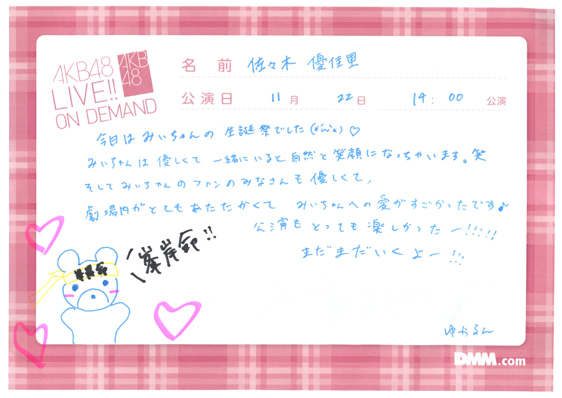 AKB48
LIVE!!
ON DEMAND
AKB
48
名前 佐々木 優佳里
公演日 11月 22日 14:00 公演
今日はみぃちゃんの 生誕祭でした(*'ω'*)♡
みぃちゃんは優しくて 一緒にいると自然と笑顔になっちゃいます。笑
そしてみぃちゃんのファンのみなさんも優しくて、
劇場内がとてもあたたかくて みぃちゃんへの愛がすごかったです♪
公演も とっても楽しかったー!!!!!
まだまだいくよー!!
峯岸命!!
峯岸命
ゆかるん
DMM.com